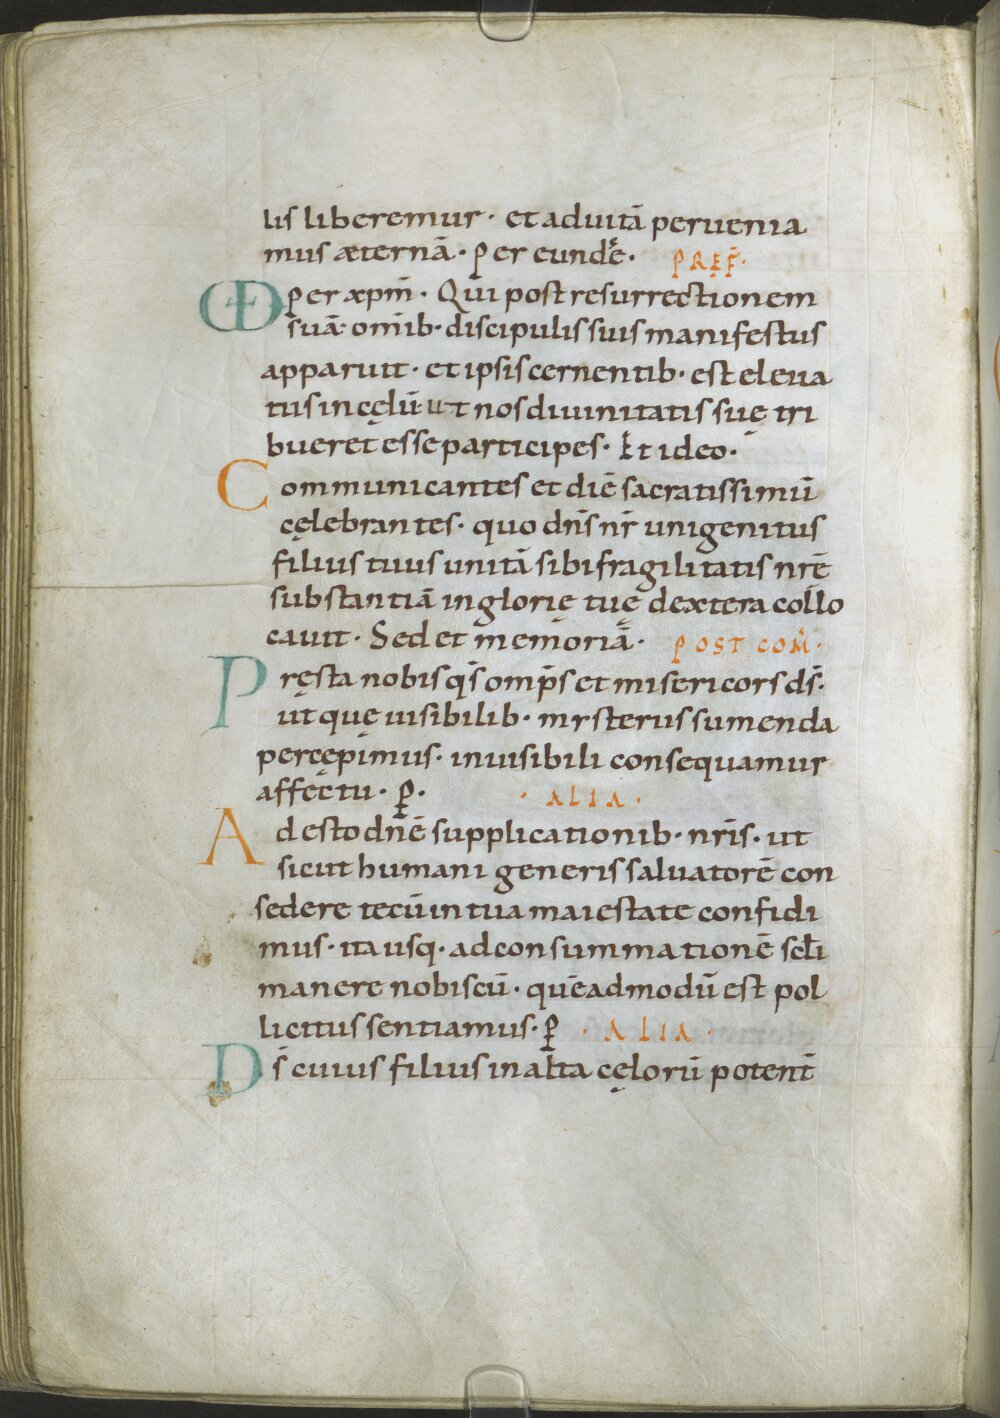 lis liberemur · et aduitā peruenia
mus æternā · Per eundē · PREF̄ ·
per xp̄m̄ · Qui post resurrectionem
suā · omīb · discipulis suis manifestus
apparuit · et ipsis cernentib · est eleua
tus in cęlū ut nos diuinitatis suę tri
bueret esse participes · Et ideo ·
Communicantes et diē sacratissimū
cęlebrantes · quo dn̄s nr̄ unigenitus
filius tuus unitā sibi fragilitatis nrē
substantiā in glorię tuę dextera collo
cauit · Sed et memoriā · POST COM̄ ·
Pręsta nobis qs̄ omp̄s et misericors ds̄ ·
ut quę uisibilib · mysteriis sumenda
percępimus · inuisibili consequamur
affectu · P · · ALIA ·
Adesto dn̄ē supplicationib · nrīs · ut
sicut humani generis saluatorē con
sedere tecū in tua maiestate confidi
mus · ita usq · ad consummationē sclī
manere nobiscū · quēadmodū est pol
licitus sentiamus · P · ALIA ·
Ds̄ cuius filius in alta cęlorū potent̄